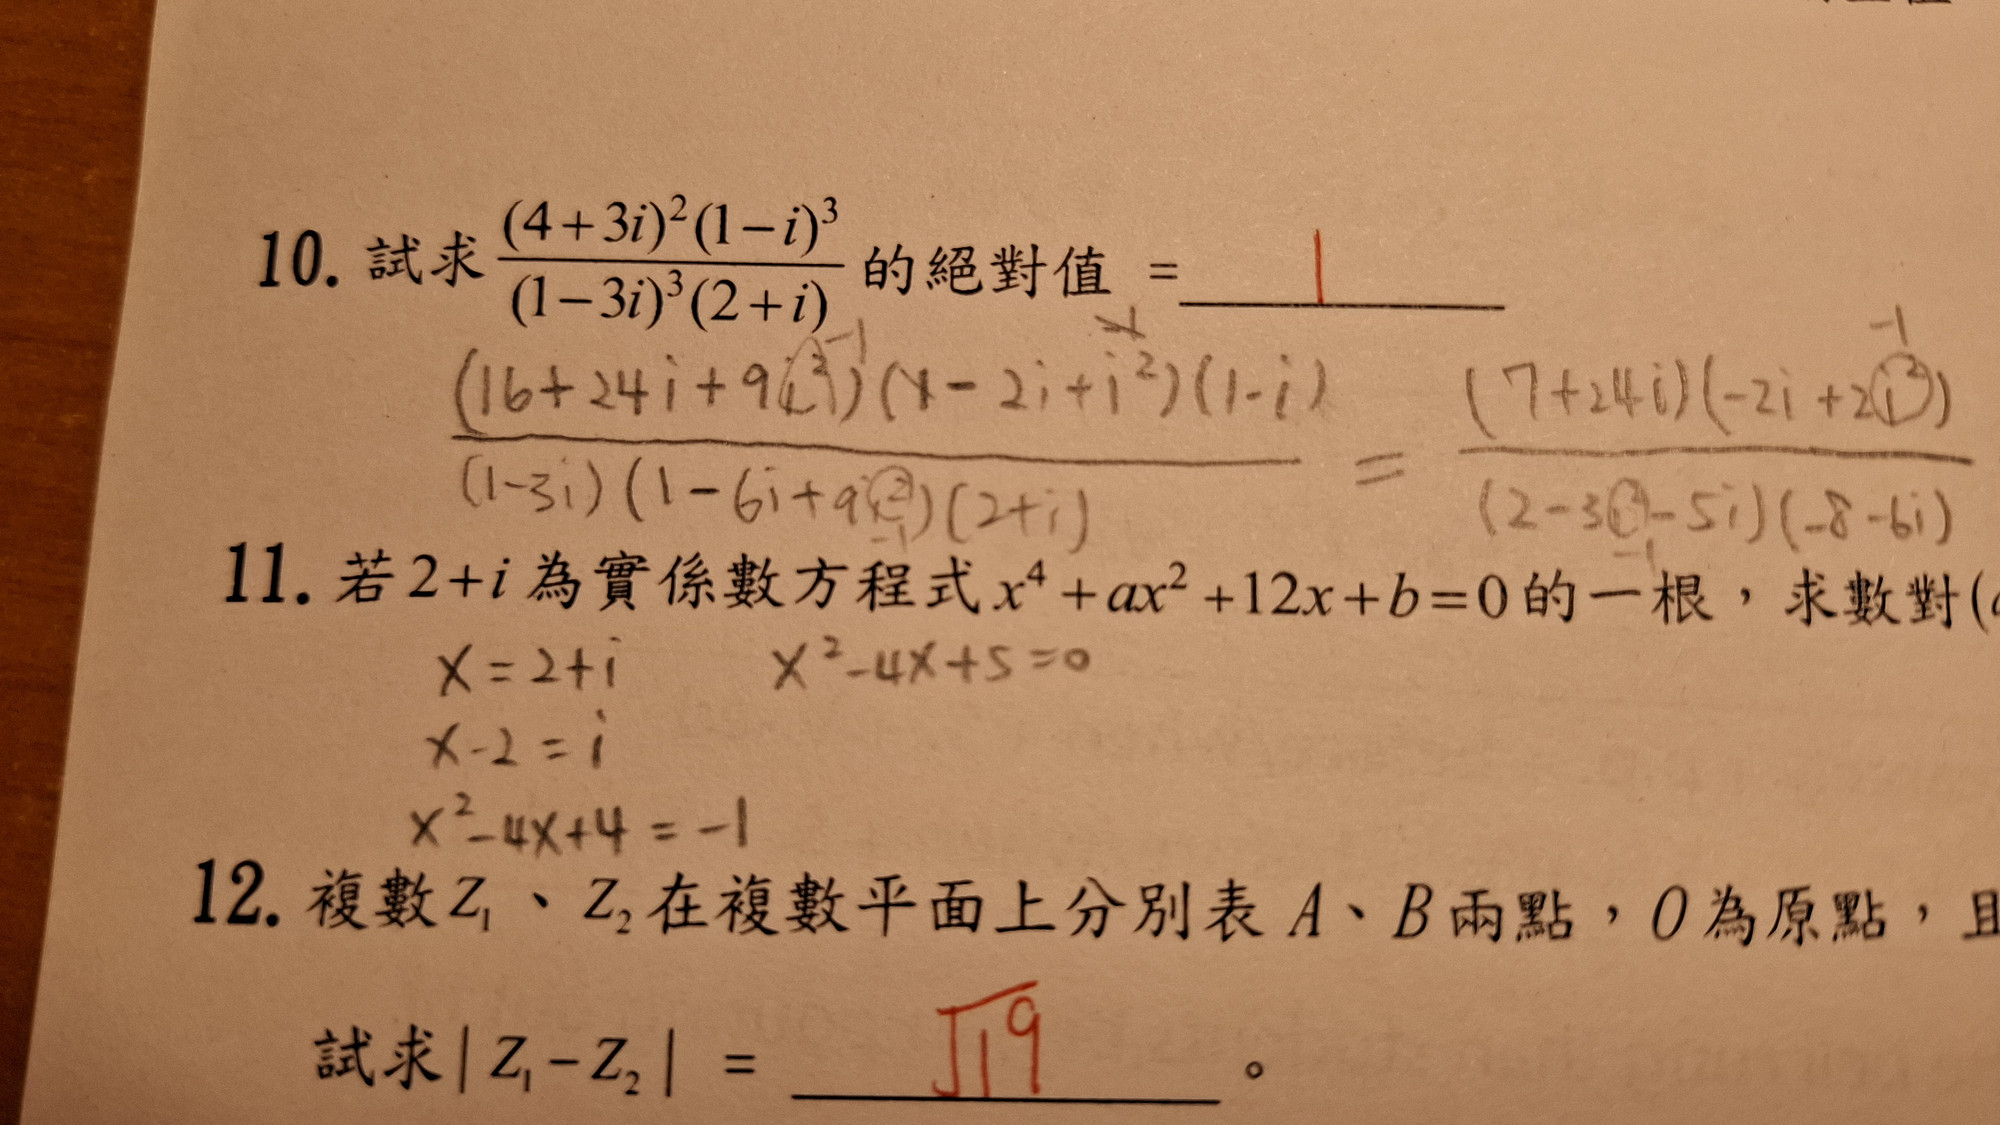 10. 試求 (4+3i)²(1−i)³ / (1−3i)³(2+i) 的絕對值 = 1
(16+24i+9i²)(1−2i+i²)(1-i) / (1-3i)(1−6i+9i²)(2+i) = (7+24i)(-2i+2i²) / (2−3i²−5i)(-8-6i)
-1 -1 -1
-1 -1
11. 若 2+i 為實係數方程式 x⁴+ax²+12x+b=0 的一根，求數對(
x=2+i x²-4x+5=0
x-2=i
x²-4x+4=-1
12. 複數 Z₁、Z₂ 在複數平面上分別表 A、B 兩點，O 為原點，且
試求 | Z₁−Z₂ | = √19 。